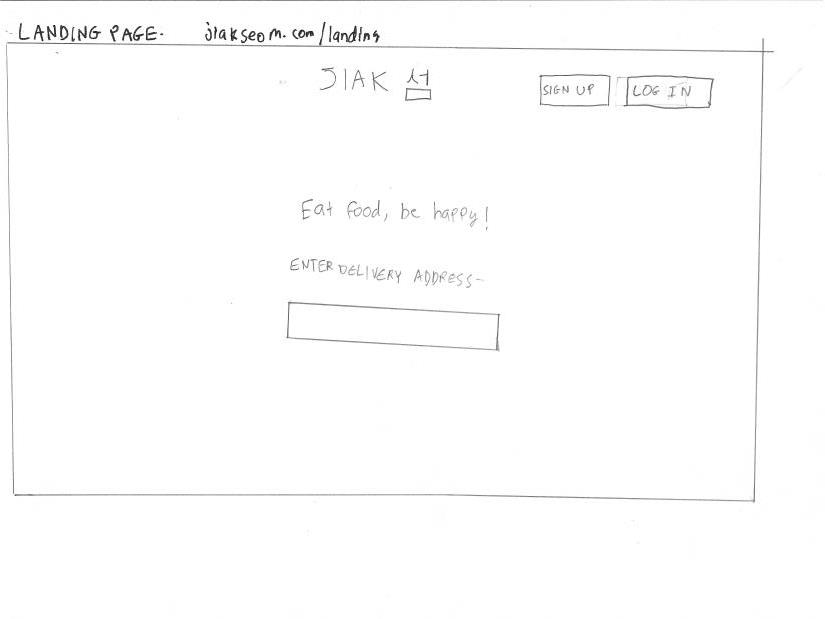 LANDING PAGE- jiakseom.com/landing
JIAK 섬
SIGN UP
LOG IN
Eat food, be happy!
ENTER DELIVERY ADDRESS-